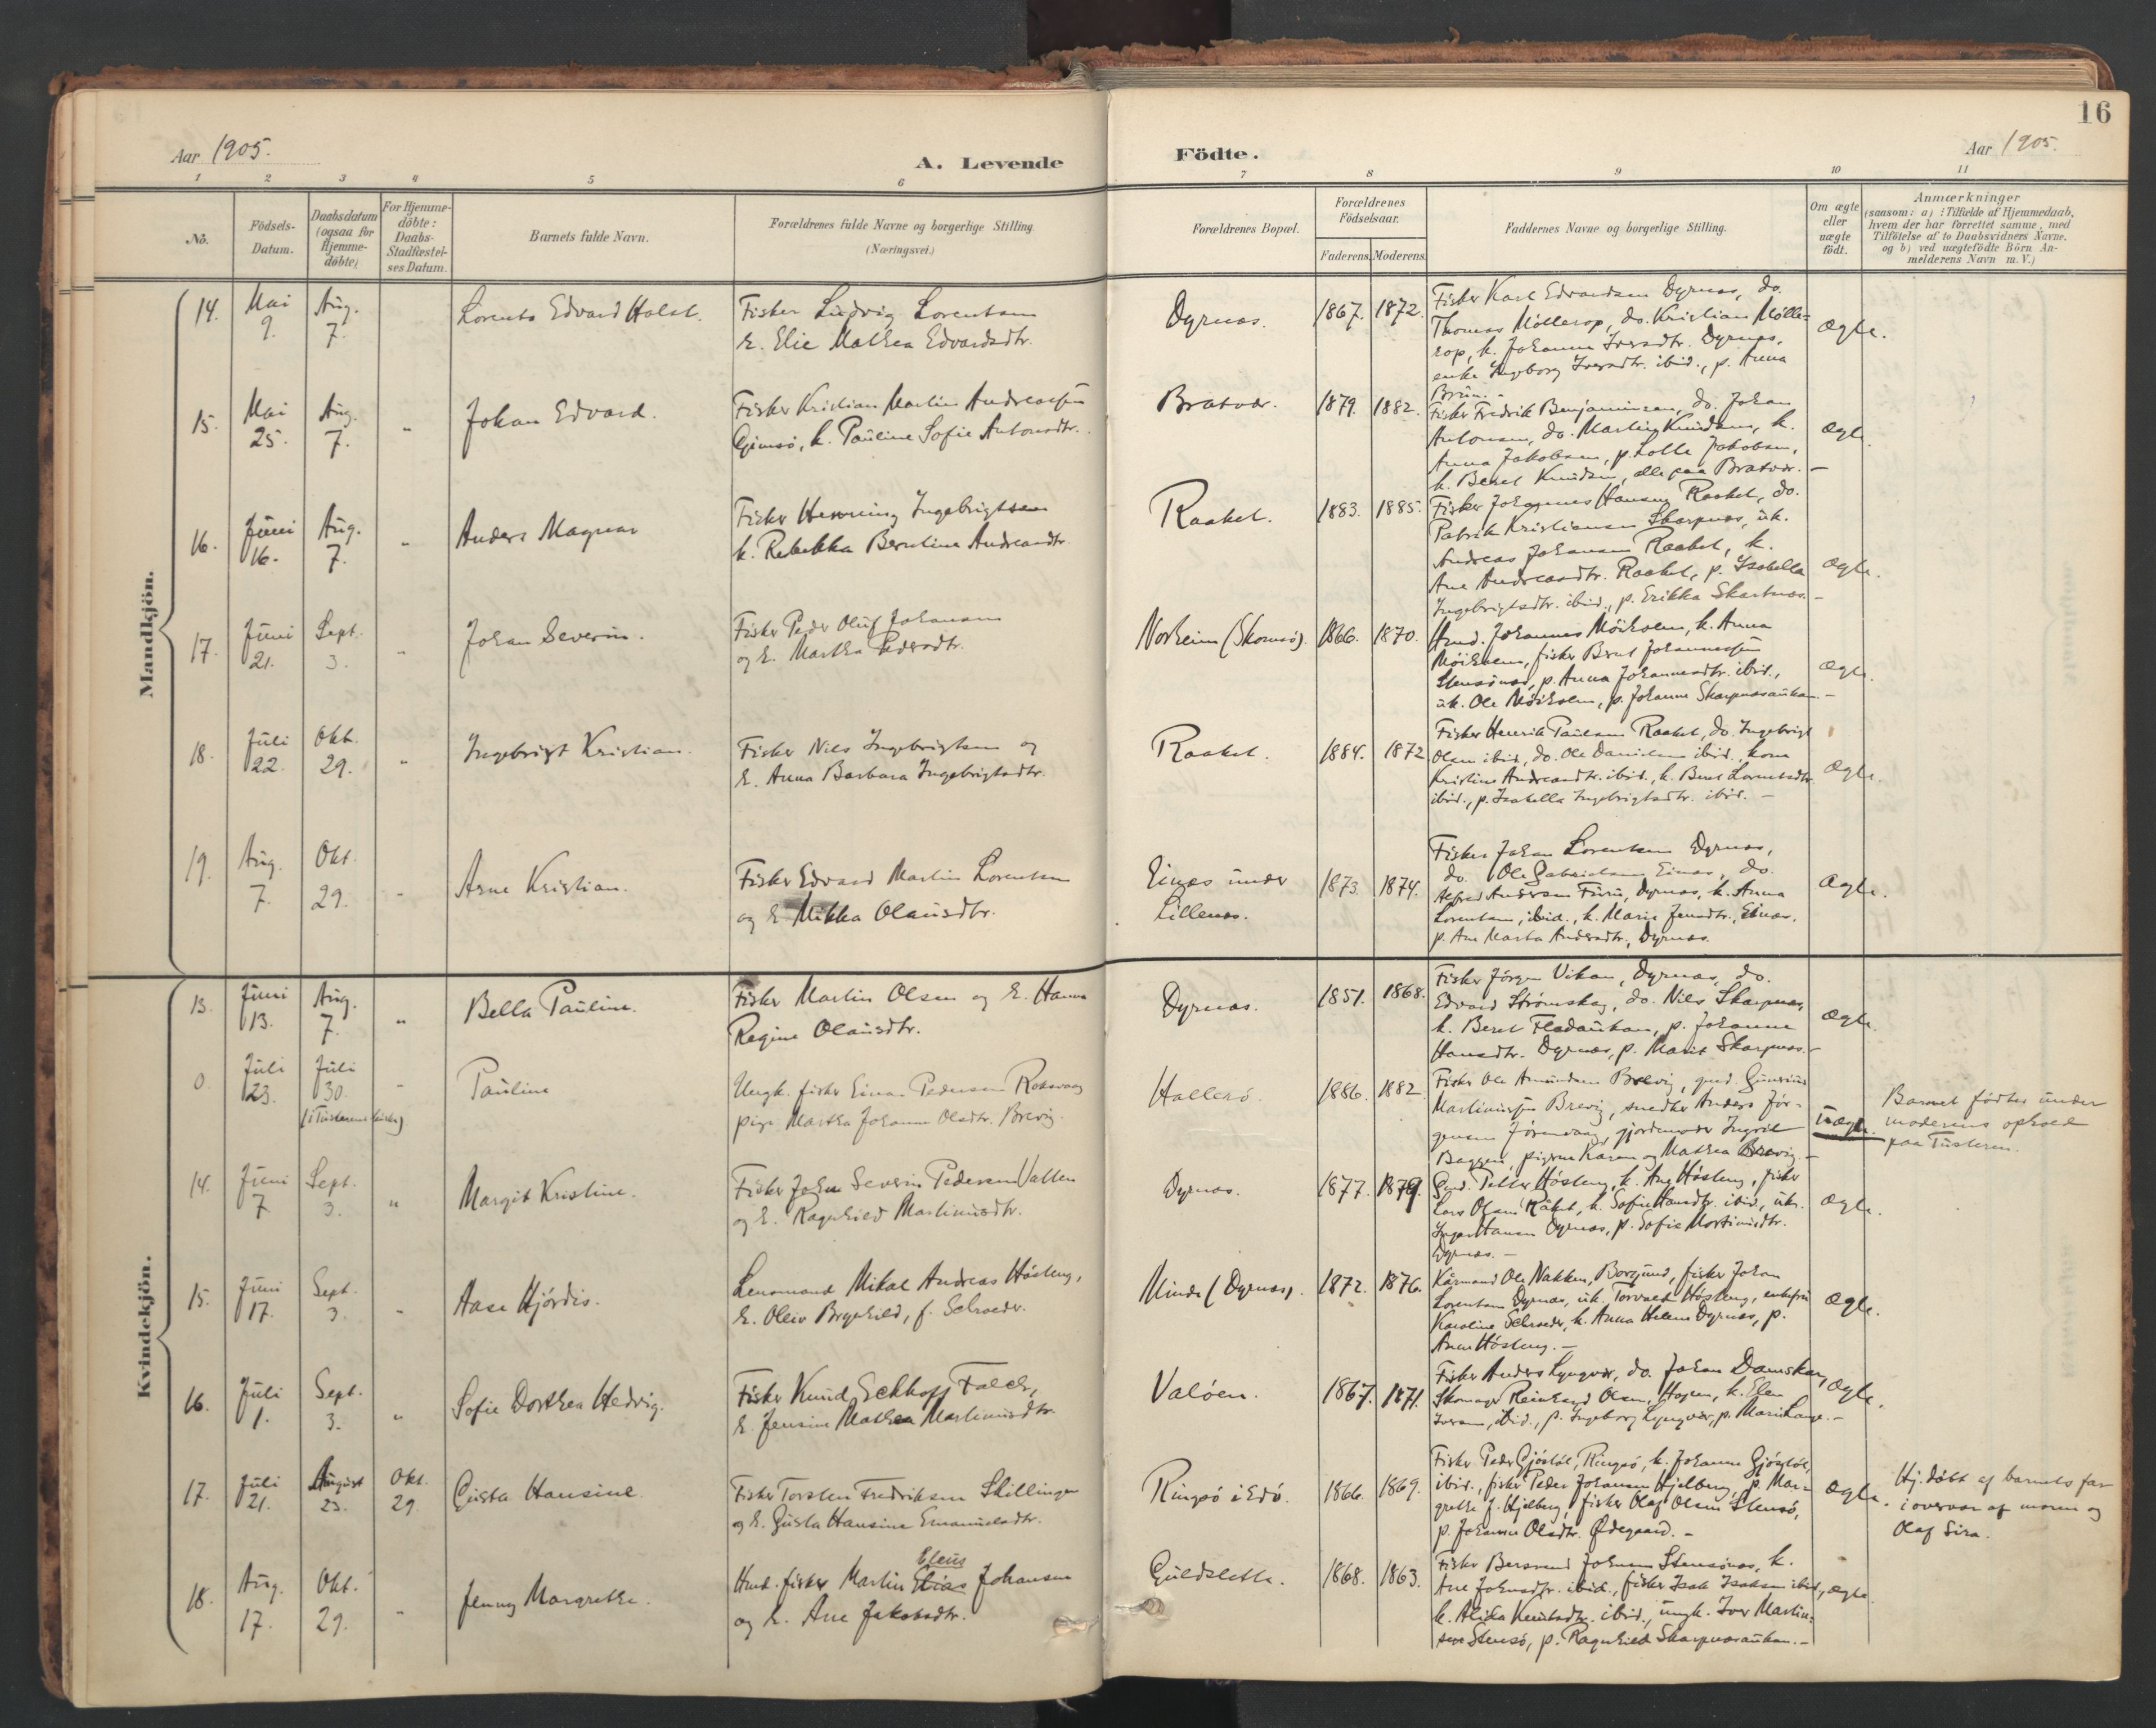 16
Aar 1905.
A. Levende Födte.
Aar 1905.
1 2 3 4 5 6 7 8 9 10 11
No.
Födsels-
Datum.
Daabsdatum
(ogsaa for
Hjemme-
döbte)
For Hjemme-
döbte:
Daabs-
Stadfæstel-
ses Datum.
Barnets fulde Navn.
Forældrenes fulde Navne og borgerlige Stilling
(Næringsvei.)
Forældrenes Bopæl.
Forældrenes
Födselsaar.
Faderens. Moderens.
Faddernes Navne og borgerlige Stilling.
Om ægte
eller
uægte
födt.
Anmærkninger
(saasom: a) i Tilfælde af Hjemmedaab,
hvem der har forrettet samme, med
Tilföielse af to Daabsvidners Navne.
og b) ved uægtefödte Börn An-
melderens Navn m. V.)
Mandkjön.
14. Mai 9. Aug. 7. Lorents Edvard Holst.
Fisker Ludvig Lorentsen
h. Elie Mathea Edvardsdtr.
Dyrnæs. 1867. 1872.
Fisker Karl Edvardsen Dyrnæs, do.
Thomas Möllerop, do. Kristian Mölle-
rop, k. Johanna Iversdtr. Dyrnæs,
enke Ingeborg Iversdtr. ibid., p. Anna
Brün. -
Ægte.
15. Mai 25. Aug. 7. " Johan Edvard.
Fisker Kristian Martin Andreassen
Gjimsö, h. Pauline Sofie Antonsdtr.
Bratvær. 1879. 1882.
Fisker Fredrik Benjaminsen, do. Johan
Antonsen, do. Martin Knudsen, k.
Anna Jakobsen, p. Lolle Jakobsen,
k. Beret Knudsen, alle paa Bratvær. -
Ægte.
16. Juni 16. Aug. 7. " Anders Magnar
Fisker Henning Ingebrigtsen
h. Rebekka Berntine Andreasdtr.
Raaket. 1883. 1885.
Fisker Johannes Hansen Raaket, do.
Patrik Kristiansen Skarpnæs, uk.
Andreas Johansen Raaket, k.
Ane Andreasdtr. Raaket, p. Isabella
Ingebrigtsdtr. ibid., p. Erikka Skartnæs. -
Ægte.
17. Juni 21. Sept. 3. " Johan Severin.
Fisker Peder Oluf Johansen
og h. Martha Pedersdtr.
Norheim (Skomsö). 1866. 1870.
Arnd. Johannes Möiholm, k. Anna
Möiholm, fisker Bernt Johannessen
Stensönæs, p. Anna Johannesdtr. ibid.,
uk. Ole Möiholm, p. Johanne Skarpnæsaunan. -
Ægte.
18. Juli 22. Okt. 29. " Ingebrigt Kristian.
Fisker Nils Ingebrigtsen og
h. Anna Barbara Ingebrigtsdtr.
Raaket. 1884. 1872
Fisker Henrik Paulsen Raaket, do. Ingebrigt
Olsen ibid., do. Ole Danielsen ibid., kone
Kristine Andreasdtr. ibid., k. Beret Lorentsdtr.
ibid., p. Isabella Ingebrigtsdtr. ibid. -
Ægte.
19. Aug. 7. Okt. 29. " Arne Kristian.
Fisker Edvard Martin Lorentsen
og h. Mikka Olausdtr.
Einæs under
Lillenæs.
1873. 1874.
Fisker Johan Lorentsen Dyrnæs,
do. Ole Gabrielsen Einæs, do.
Alfred Andersen Furu, Dyrnæs, k. Anna
Lorentsen, ibid., k. Marie Jensdtr., Einæs,
p. Ane Marta Andersdtr., Dyrnæs.
Ægte.
Kvindekjön.
13. Juni 13. Aug. 7. " Bella Pauline.
Fisker Martin Olsen og h. Hanna
Regine Olausdtr.
Dyrnæs. 1851. 1868.
Fisker Jörgen Vikan, Dyrnæs, do.
Edvard Strömskag, do. Nils Skarpnæs,
k. Beret Fladaunan, p. Johanne
Hansdtr. Dyrnæs, p. Marit Skarpnæs. -
Ægte.
0. Juli 23. Juli 30. (i Tusterens kirke) " Pauline
Ungk. fisker Einar Pedersen Roksvaag
pige Martha Johanne Olsdtr. Brevig.
Hallerö. 1886. 1882
Fisker Ole Amundsen Brevig, gmd. Gunerius
Martinussen Brevig, snedker Anders Jör-
gensen Jörenvaag, gjordemoder Ingrid
Baggen, pigerne Karen og Mathea Brevig. -
Uægte.
Barnet födtes under
moderens ophold
paa Tusteren.
14. Juni 7 Sept. 3. " Margit Kristine.
Fisker John Severin Pedersen Vatten
og h. Ragnhild Martinusdtr.
Dyrnæs. 1877. 1879.
Gmd. Petter Hösteng, k. Ane Hösteng, fisker
Lars Olsen Raket, k. Sofie Hansdtr. ibid., uk.
Inger Hansen Dyrnæs, p. Sofie Martinusdtr.
Dyrnæs. -
Ægte.
15. Juni 17. Sept. 3. " Aase Hjördis.
Lensmand Mikal Andreas Hösteng,
h. Oleiv Brynhild, f. Schroeder.
Minde (Dyrnæs). 1872. 1876.
Kårmand Ole Nakken, Borgund, fisker Johan
Lorentsen Dyrnæs, uk. Torvald Hösteng, enkefru
Karoline Schroeder, k. Anna Helene Dyrnæs, p.
Anne Hösteng. -
Ægte.
16. Juli 1. Sept. 3. " Sofie Dorthea Hedvig.
Fisker Knud Eckhoff Falch,
h. Jensine Mathea Martinusdtr.
Valöen. 1867. 1871.
Fisker Anders Lyngvær, do. Johan Damskar,
Skomager Reinhard Olsen, Hopen, k. Elen
Iversen, ibid., p. Ingeborg Lyngvær, p. Marie Lange. -
Ægte.
17. Juli 21. August 23. Okt. 29. Gusta Hansine
Fisker Torsten Fredriksen Skillingen
og h. Gusta Hansine Emanuelsdtr.
Ringsö i Edö. 1866. 1869.
Fisker Peder Gjöstöl, Ringsö, k. Johanne Gjöstöl,
ibid., fisker Peder Johansen Hjelberg, p. Mar-
grethe J. Hjelberg, fisker Olaf Olsen Stensö,
p. Johanne Olsdtr. Ødegaard. -
Ægte.
Hj. döbt af barnets far
i overvær af moren og
Olaf Sira.
18. Aug. 17. Okt. 29. " Jenny Margrethe.
Eleus
Hmd. fisker Martin Elias Johansen
og h. Ane Jakobsdtr.
Guldslette. 1868. 1863.
Fisker Bersvend Johnsen Stensönæs, k.
Ane Johnsdtr. ibid., fisker Isak Isaksen ibid.,
k. Alida Knutsdtr. ibid., ungk. Iver Martin-
sen Stensö, p. Ragnhild Skarpnæsaunan. -
Ægte.